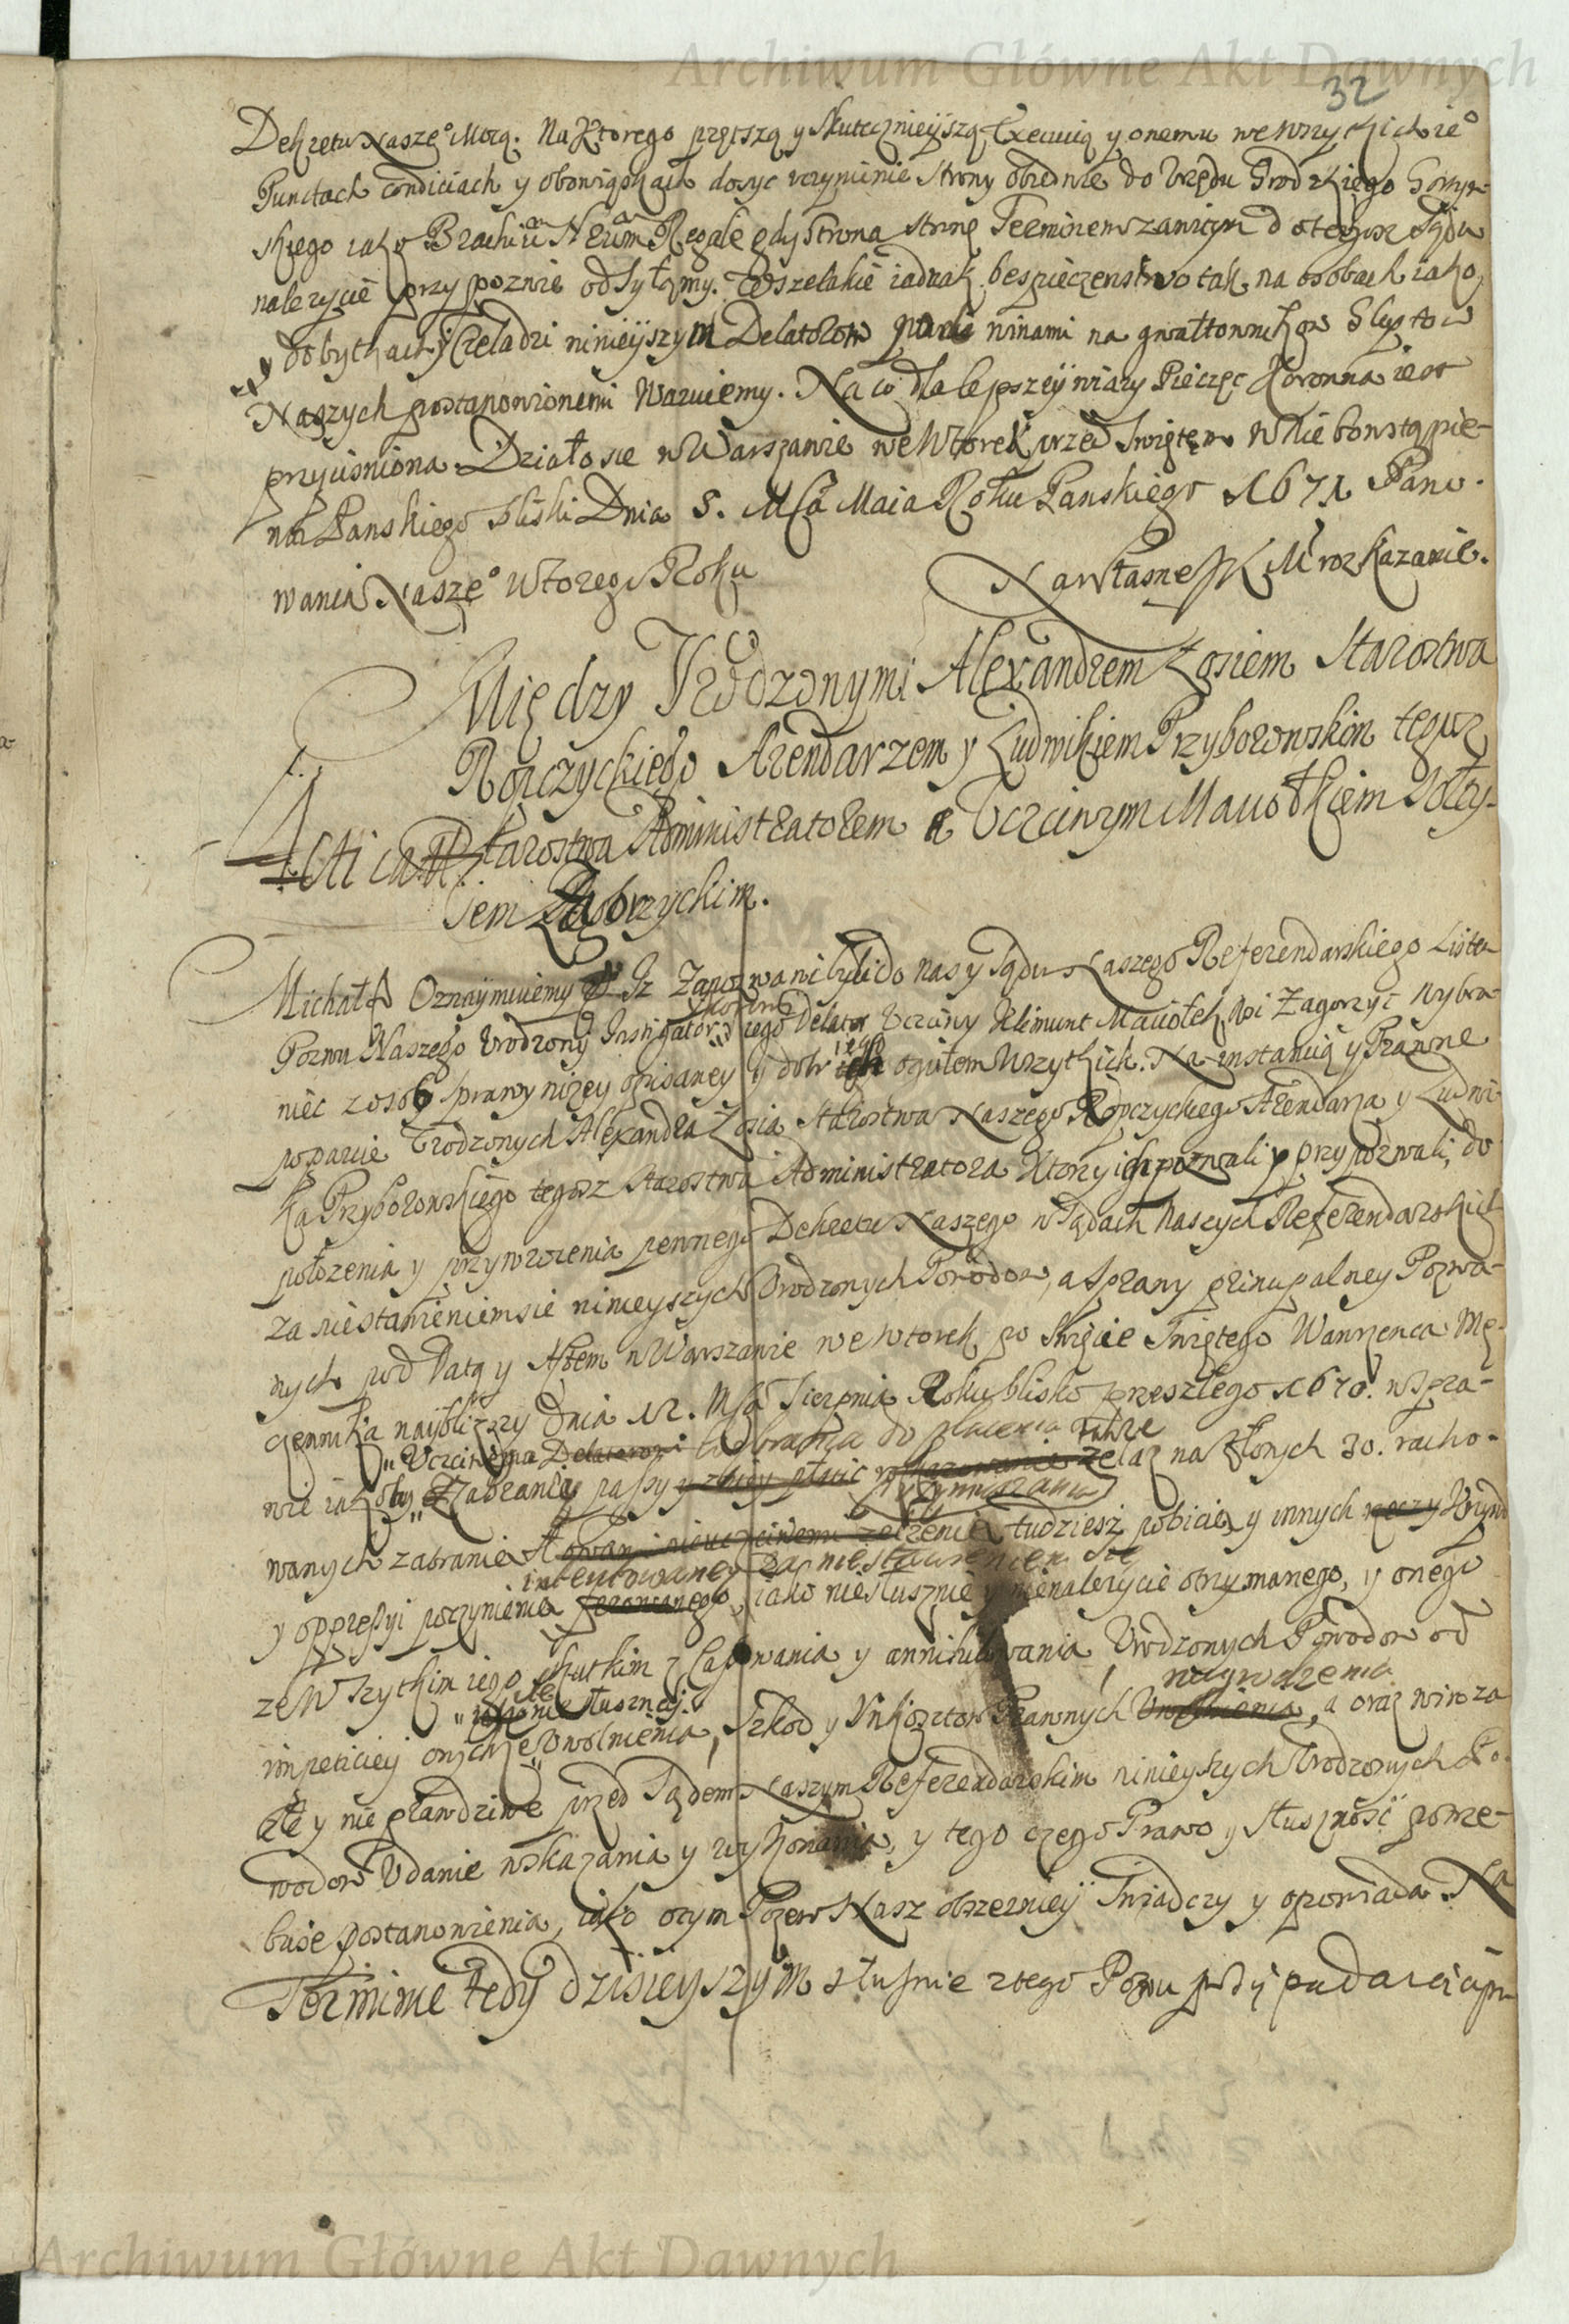 Archiwum Główne Akt Dawnych
32
Dekretu Nasze° Mocą. Na Ktorego prętszą y Skutecznieyszą Executią y onemu we Wszytkich ie°
Punctach condiciach y obowiąskach dosyc uczynienie Strony obiedwie do Urzędu Grodzkiego
skiego iako Brachiu Nrum Regale gdy Strona Stronę Terminem zawitym do tegosz Sądu
nalezycie przypozwie odsyłamy. Wszelakie iednak bespieczenstwo tak na osobach iako
y dobytkach y Czeladzi ninieyszym Delatorom winami na gwałtownikow Gleytow
Naszych postanowionemi Waruiemy. Na co dla lepszey wiary Pieczęc Koronna iest
przycisniona. Działo sie w Warszawie we Wtorek przed Swiętem W Niebowstąpie-
nia Panskiego bliski Dnia 5. Msca Maia Roku Panskiego 1671 Pano-
wania Nasze° Wtorego Roku
Na własne JKM rozkazanie.
Między Urodzonymi Alexandrem Łosiem Starostwa
Ropczyckiego Arendarzem y Ludwikiem Przyborowskim tegosz
Starostwa Administratorem a Uczciwym Maciołkiem Sołty-
sem Zagorzyckim.
Michał Oznaymuiemy Iz Zapozwani byli do nas y Sądu Naszego Referendarskiego Listem
Pozwu Naszego Urodzony Instigator Koronny y iego Delator Uczciwy Klimunt Maciołek, Wsi Zagorzyc Wybra-
niec z osob sprawy nizey opisaney y dobr iego ogułem Wszytkich. Na instantią y Prawne
poparcie Urodzonych Alexandra Łosia Starostwa Naszego Ropczyckiego Arendarza y Ludwi-
ka Przyborowskiego tegosz Starostwa Administratora Ktorzy ich pozwali y przypozwali, do
połozenia y przywrocenia pewnego Dekretu Naszego w Sądach Naszych Referendarskich
za niestawieniem sie ninieyszych Urodzonych Powodow, a Sprawy principalney Pozwa-
nych pod Datą y Aktem w Warszawie we Wtorek po Swięcie Swiętego Wawrzenca Mę-
czennika naybliszy Dnia 12. Msca Sierpnia Roku blisko przeszłego 1670. w Spra-
wie iakoby Uczciwemu Delatorowi do płacenia także
Zabrania paszy y na Złotych 30. racho-
wanych zabranie tudziesz pobicie y innych Krzywd
intentowaney za niestawieniem się
y oppressyi poczynienia ferowanego, iako niesłusznie y nienalezycie otrzymanego, y onego
ze Wszytkim iego skutkim y annihilowania Urodzonych Powodow od
impeticiey onych ze Uwolnienia, Szkod y Unkosztow Prawnych nagrodzenia, a oraz win za
złe y nieprawdziwe przed Sądem Naszym Referendarskim ninieyszych Urodzonych Po-
wodow Udanie wskazania y wykonania, y tego czego Prawo y Słusznosc potrze-
buie postanowienia, iako o tym Pozew Nasz obszerniey Swiadczy y opowiada. Na
Terminie tedy dzisieyszym słusznie z tego Pozwu
Archiwum Główne Akt Dawnych